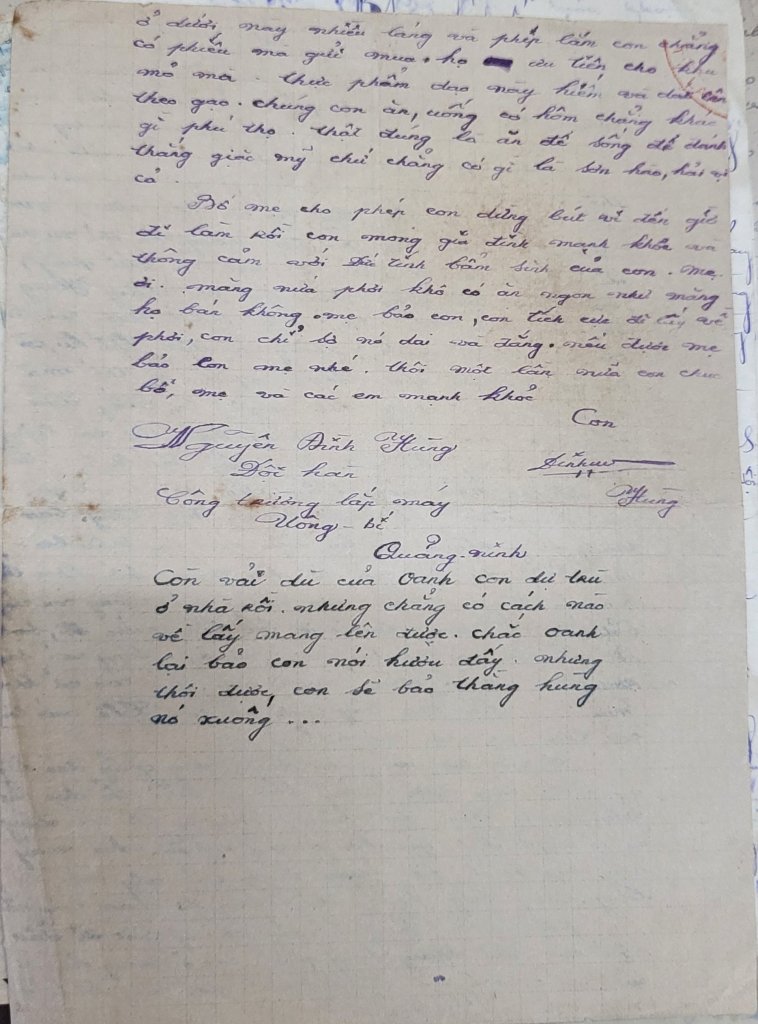 ở dưới này nhiều láng và phép lắm con chẳng
có phiếu mà gửi mua. họ ưu tiên cho khu
mỏ mà. thực phẩm dạo này hiếm và đắt lên
theo gạo. chúng con ăn, uống có hôm chẳng khác
gì phú thọ. thật đúng là ăn để sống để đánh
thắng giặc mỹ chứ chẳng có gì là sơn hào, hải vị
cả.
Bố mẹ cho phép con dừng bút vì đến giờ
đi làm rồi con mong gia đình mạnh khỏe và
thông cảm với tính bẩm sinh của con. mẹ
ơi. măng nứa phơi khô có ăn ngon như măng
họ bán không. mẹ bảo con, con tích cực đi lấy về
phơi, con chỉ sợ nó dai và đắng. nếu được mẹ
bảo con mẹ nhé. thôi một lần nữa con chúc
bố, mẹ và các em mạnh khoẻ
Con
Nguyễn Đình Hùng
Đội hàn
Hùng
Công trường lắp máy
Uông-bí
Quảng-ninh
Còn vải dù của Oanh con dự trữ
ở nhà rồi. nhưng chẳng có cách nào
về lấy mang lên được. chắc oanh
lại bảo con nói hươu đấy. nhưng
thôi được, con sẽ bảo thằng hùng
nó xuống...